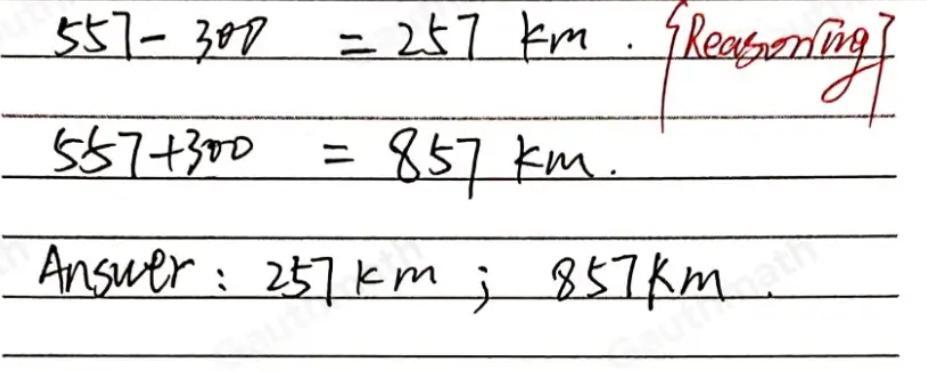 557 - 300 = 257 km. {Reasoning}
557+300 = 857 km.
Answer: 257 km; 857km.
Gauthmath
Gauthmath